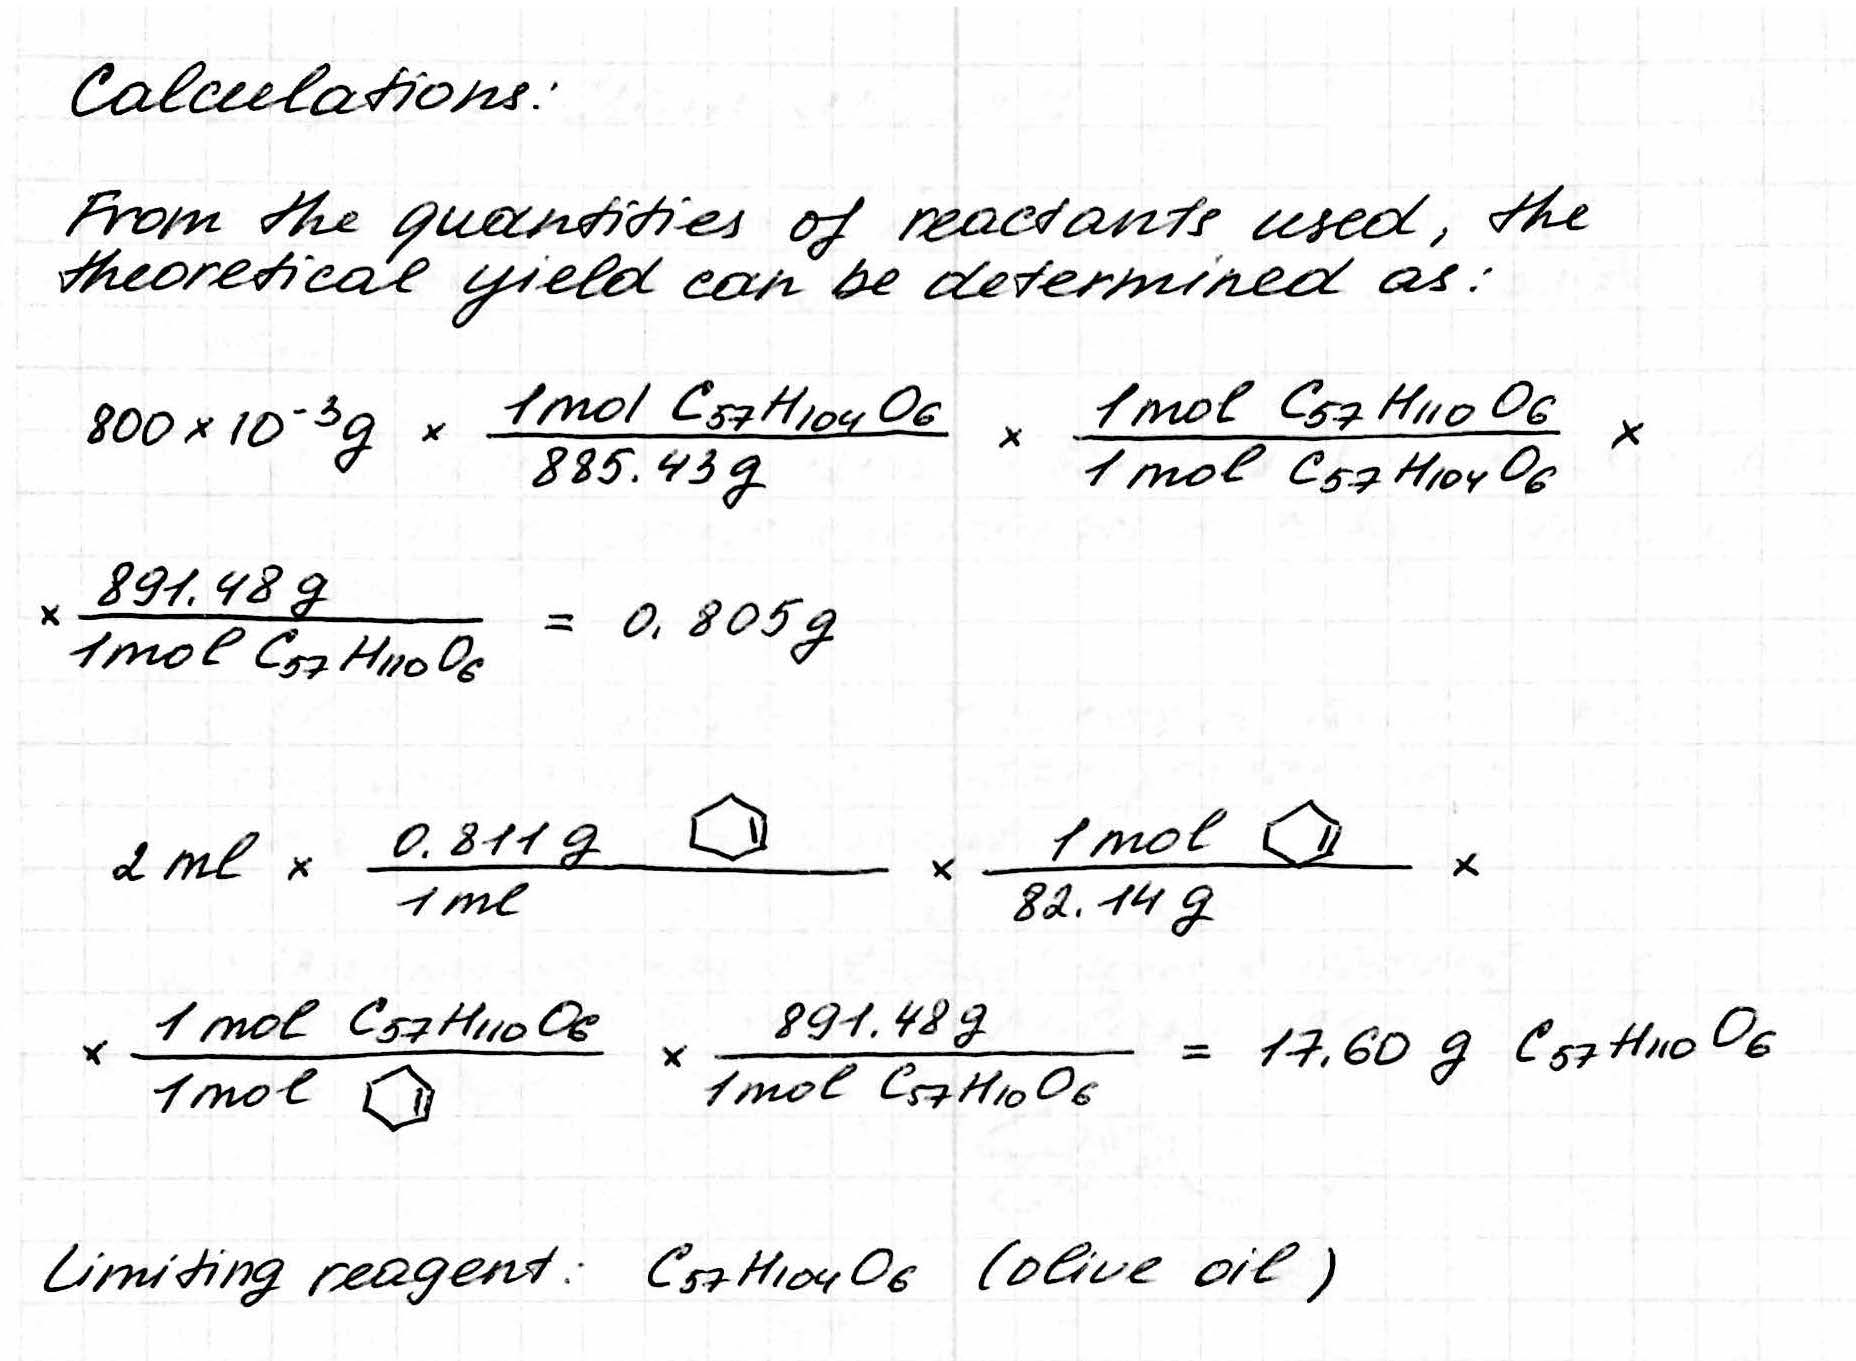 Calculations:
From the quantities of reactants used, the
theoretical yield can be determined as:
800 × 10⁻³g × (1mol C₅₇H₁₀₄O₆ / 885.43g) × (1mol C₅₇H₁₁₀O₆ / 1mol C₅₇H₁₀₄O₆) ×
× (891.48g / 1mol C₅₇H₁₁₀O₆) = 0.805g
2ml × (0.811g / 1ml) × (1mol / 82.14g) ×
× (1mol C₅₇H₁₁₀O₆ / 1mol) × (891.48g / 1mol C₅₇H₁₀O₆) = 17.60 g C₅₇H₁₁₀O₆
Limiting reagent: C₅₇H₁₀₄O₆ (olive oil)